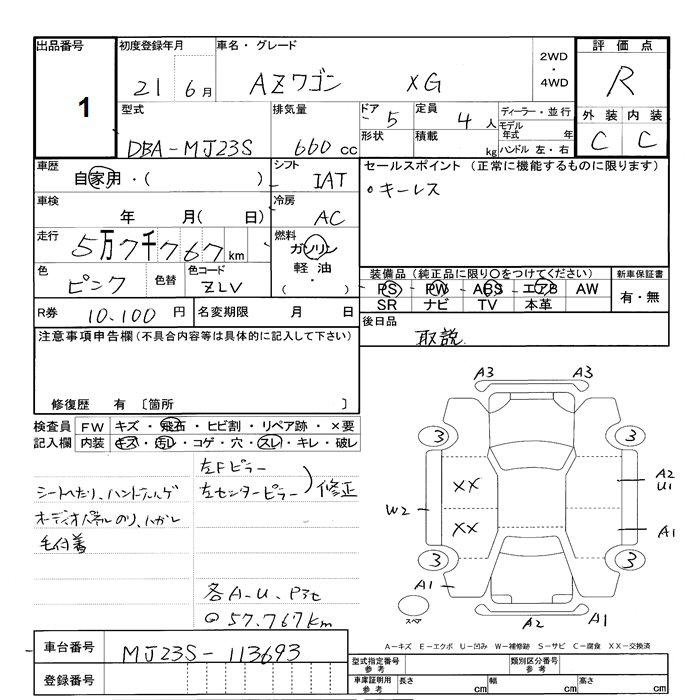 出品番号 1
初度登録年月 21 6月
車名・グレード AZワゴン XG
2WD ・ 4WD
評価点 R
外装 内装
C C
型式 DBA-MJ23S
排気量 660cc
ドア 5
形状
定員 4人
積載 kg
ディーラー・並行
モデル年式 年
ハンドル 左・右
車歴 自家用・( )
シフト IAT
セールスポイント(正常に機能するものに限ります)
○キーレス
車検 年 月( 日)
冷房 AC
走行 5万7千767km
燃料 ガソリン
軽油
( ・ )
色 ピンク
色替
色コード ZLV
装備品(純正品に限り○をつけてください)
PS PW ABS エアB AW
SR ナビ TV 本革
新車保証書
有・無
R券 10,100 円
名変期限 月 日
後日品 取説
注意事項申告欄(不具合内容等は具体的に記入して下さい)
修復歴 有 〔箇所 〕
検査員記入欄
FW キズ・飛石・ヒビ割・リペア跡・×要
内装 キズ・汚レ・コゲ・穴・スレ・キレ・破レ
左Fピラー
左センターピラー 修正
シートへたり、ハンドルハゲ
オーディオパネルのり、ハガレ
毛付着
各A-U、P3t
@57,767km
A3 A3
3 3
XX
A2
U1
W2
XX
A1
3 3
A1
スペア
A2 A1
A-キズ E-エクボ U-凹み W-補修跡 S-サビ C-腐食 XX-交換済
車台番号 MJ23S-113693
登録番号
型式指定番号 参考
類別区分番号 参考
車庫証明用 参考 長さ cm 幅 cm 高さ cm